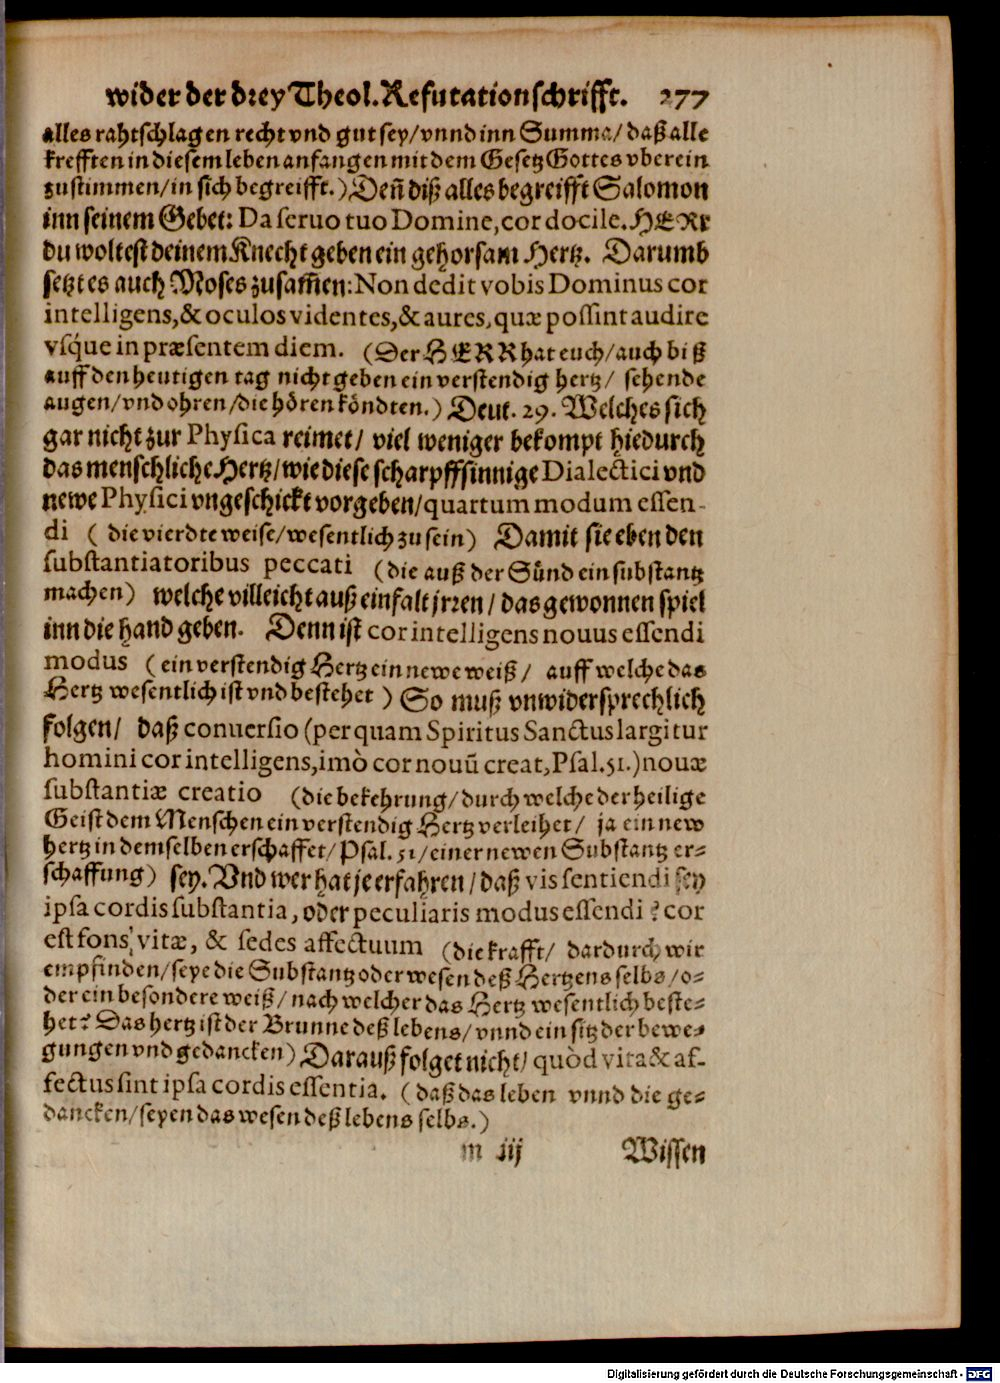 wider der drey Theol. Refutationschrifft. 277
alles rahtschlagen recht vnd gut sey/ vnnd inn Summa/ daß alle
krefften in diesem leben anfangen mit dem Gesetz Gottes vberein
zustimmen/ in sich begreifft.) Deñ diß alles begreifft Salomon
inn seinem Gebet: Da seruo tuo Domine, cor docile. HERr
du woltest deinem Knecht geben ein gehorsam Hertz. Darumb
setzt es auch Moses zusam̃en: Non dedit vobis Dominus cor
intelligens, & oculos videntes, & aures, quæ possint audire
vsq́ue in præsentem diem. (Der HERR hat euch/ auch biß
auff den heutigen tag nicht geben ein verstendig hertz/ sehende
augen/ vnd ohren/ die hören köndten.) Deut. 29. Welches sich
gar nicht zur Physica reimet/ viel weniger bekompt hiedurch
das menschliche Hertz/ wie diese scharpffsinnige Dialectici vnd
newe Physici vngeschickt vorgeben/ quartum modum essen-
di ( die vierdte weise/ wesentlich zu sein) Damit sie eben den
substantiatoribus peccati (die auß der Sünd ein substantz
machen) welche villeicht auß einfalt jrren/ das gewonnen spiel
inn die hand geben. Denn ist cor intelligens nouus essendi
modus ( ein verstendig Hertz ein newe weiß/ auff welche das
Hertz wesentlich ist vnd bestehet ) So muß vnwidersprechlich
folgen/ daß conuersio (per quam Spiritus Sanctus largitur
homini cor intelligens, imò cor nouũ creat, Psal. 51.) nouæ
substantiæ creatio (die bekehrung/ durch welche der heilige
Geist dem Menschen ein verstendig Hertz verleihet/ ja ein new
hertz in demselben erschaffet/ Psal. 51/ einer newen Substantz er-
schaffung) sey. Vnd wer hat je erfahren/ daß vis sentiendi sey
ipsa cordis substantia, oder peculiaris modus essendi ? cor
est fons vitæ, & sedes affectuum (die krafft/ dardurch wir
empfinden/ seye die Substantz oder wesen deß Hertzens selbs/ o-
der ein besondere weiß/ nach welcher das Hertz wesentlich beste-
het? Das hertz ist der Brunne deß lebens/ vnnd ein sitz der bewe-
gungen vnd gedancken) Darauß folget nicht/ quòd vita & af-
fectus sint ipsa cordis essentia. ( daß das leben vnnd die ge-
dancken/ seyen das wesen deß lebens selbs.)
m iij Wissen
Digitalisierung gefördert durch die Deutsche Forschungsgemeinschaft - DFG